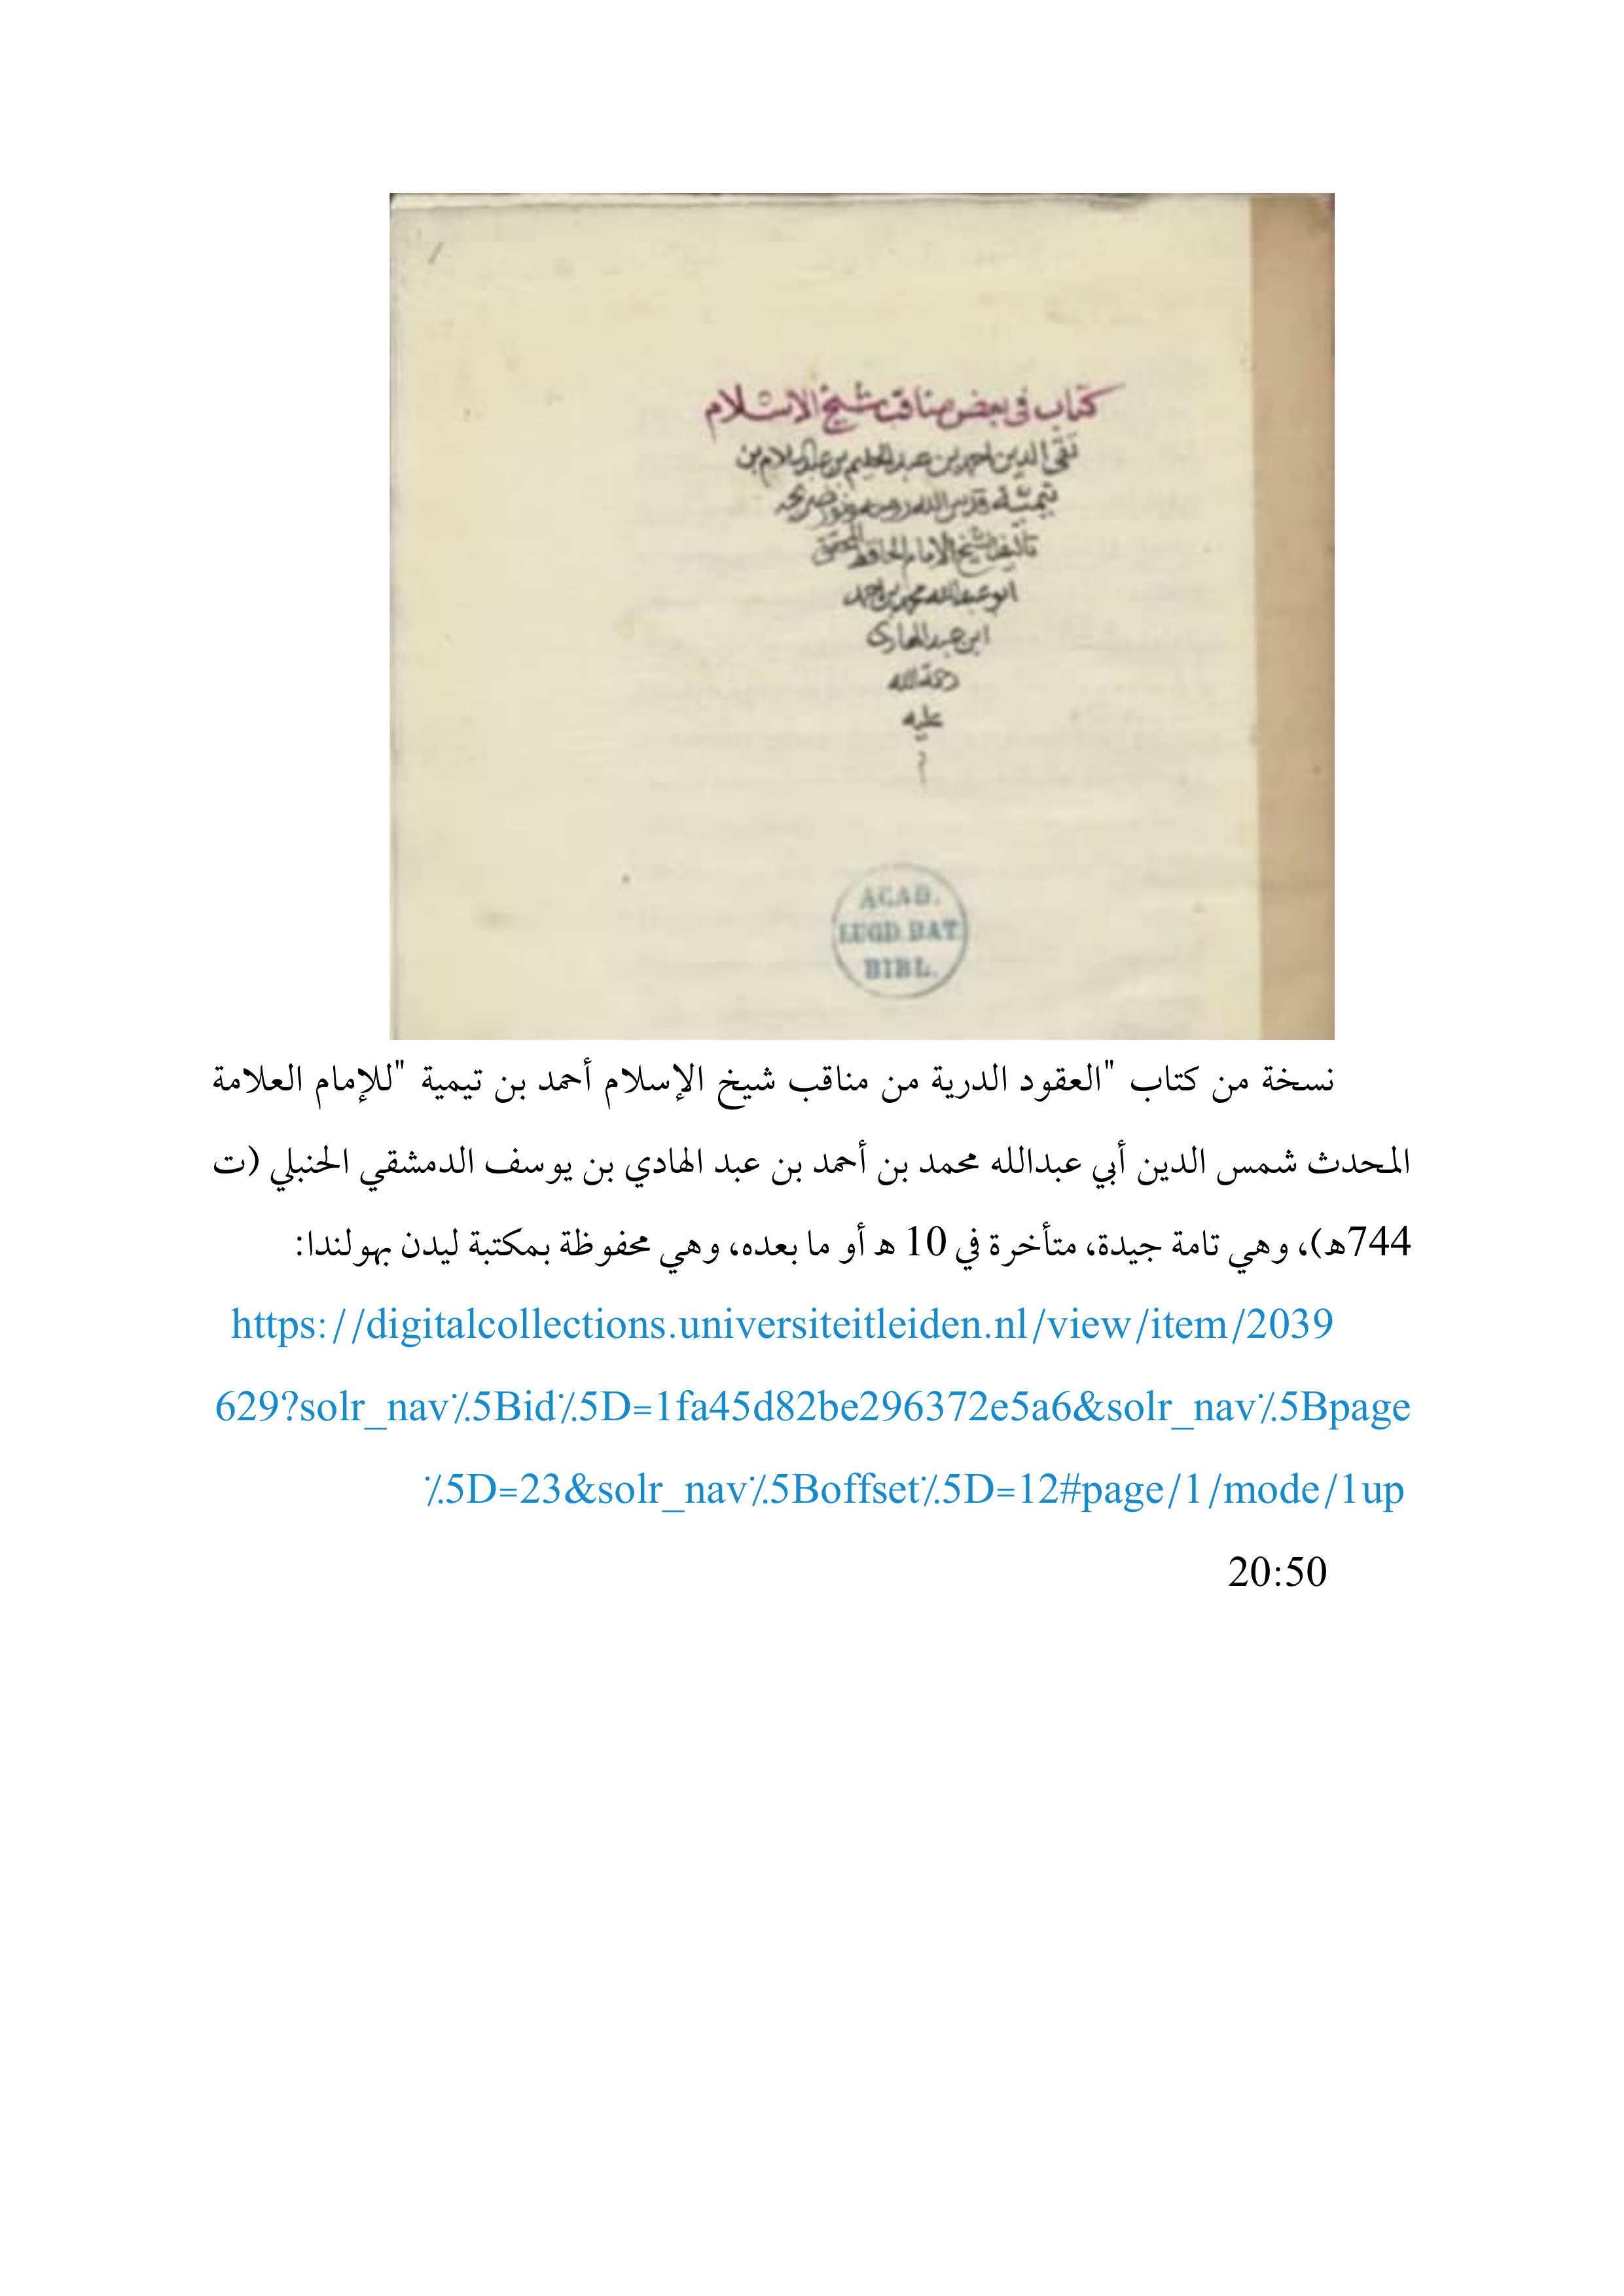 كتاب في بعض مناقب شيخ الاسلام
تقى الدين احمد بن عبد الحليم بن عبد السلام بن
تيميّة قدس الله روحه ونور ضريحه
تأليف الشيخ الامام الحافظ المحقق
ابو عبد الله محمد بن احمد
ابن عبد الهادى
رحمة الله
عليه
ACAD.
LUGD.BAT.
BIBL.
نسخة من كتاب "العقود الدرية من مناقب شيخ الإسلام أحمد بن تيمية "للإمام العلامة
المحدث شمس الدين أبي عبدالله محمد بن أحمد بن عبد الهادي بن يوسف الدمشقي الحنبلي (ت
744ه)، وهي تامة جيدة، متأخرة في 10 ه أو ما بعده، وهي محفوظة بمكتبة ليدن بهولندا:
https://digitalcollections.universiteitleiden.nl/view/item/2039
629?solr_nav٪5Bid٪5D=1fa45d82be296372e5a6&solr_nav٪5Bpage
٪5D=23&solr_nav٪5Boffset٪5D=12#page/1/mode/1up
20:50